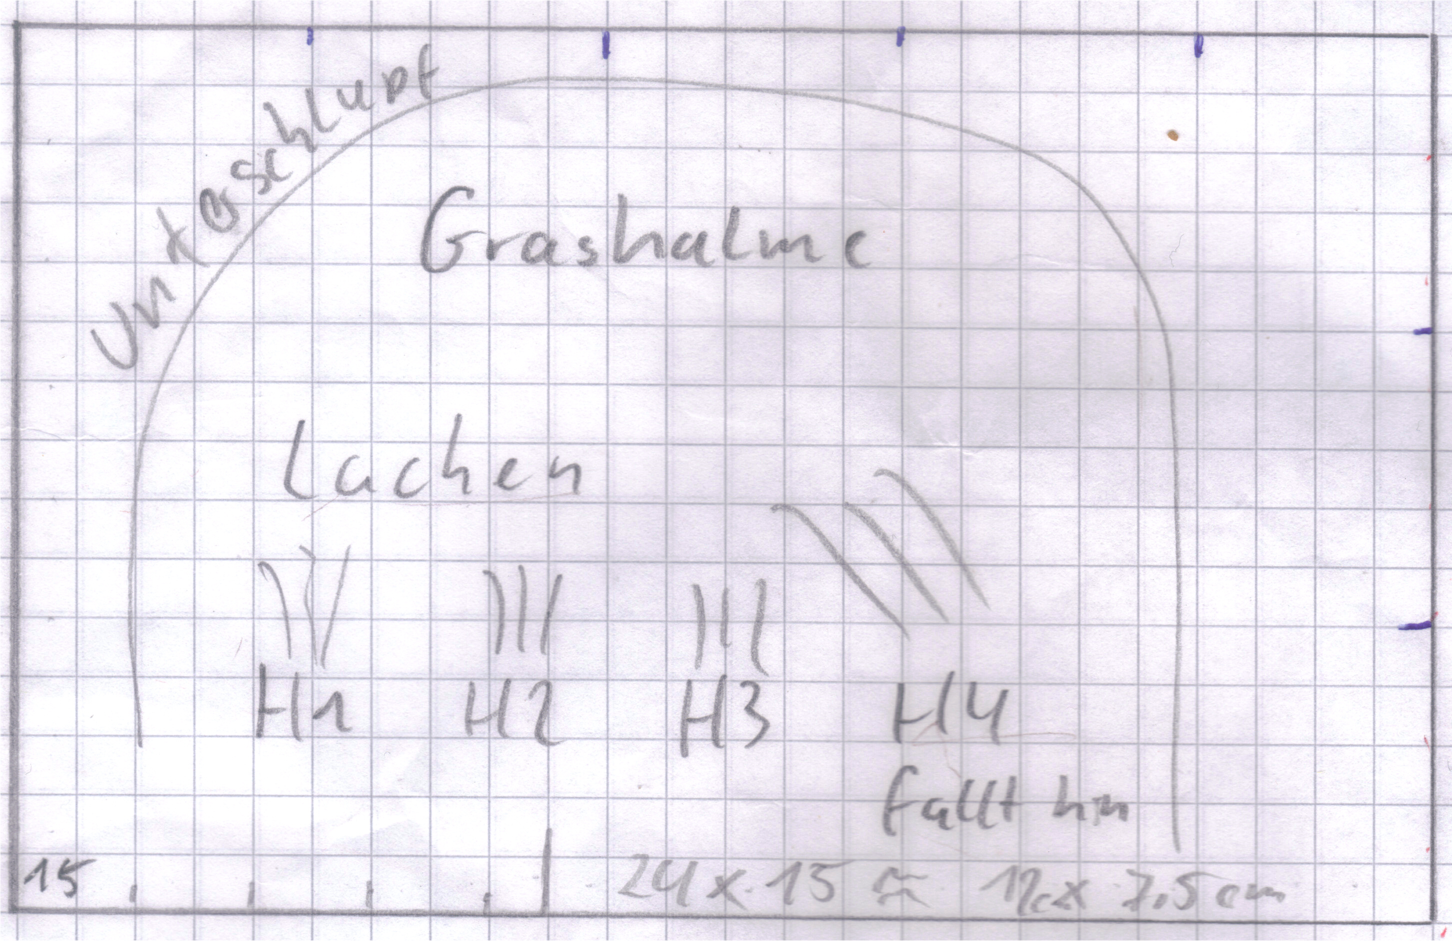 Unterschlupf
Grashalme
Lachen
H1 H2 H3 H4
fällt hin
15 24 x 15 ≈ 12 x 7.5 cm